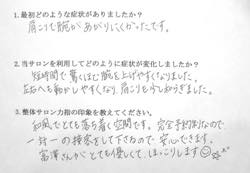 1.最初どのような症状がありましたか?
肩こりで腕があがりにくかったです。
2.当サロンを利用してどのように症状が変化しましたか?
短時間で驚くほど腕を上げやすくなりました。
左右へも動かしやすくなり、肩こりも少し和らぎました。
3.整体サロン力指の印象を教えてください。
和風でとても落ち着く空間です。完全予約制なので
一対一の接客をして下さるので安心できます。
富澤さんがとても優しくて、ほっこりします